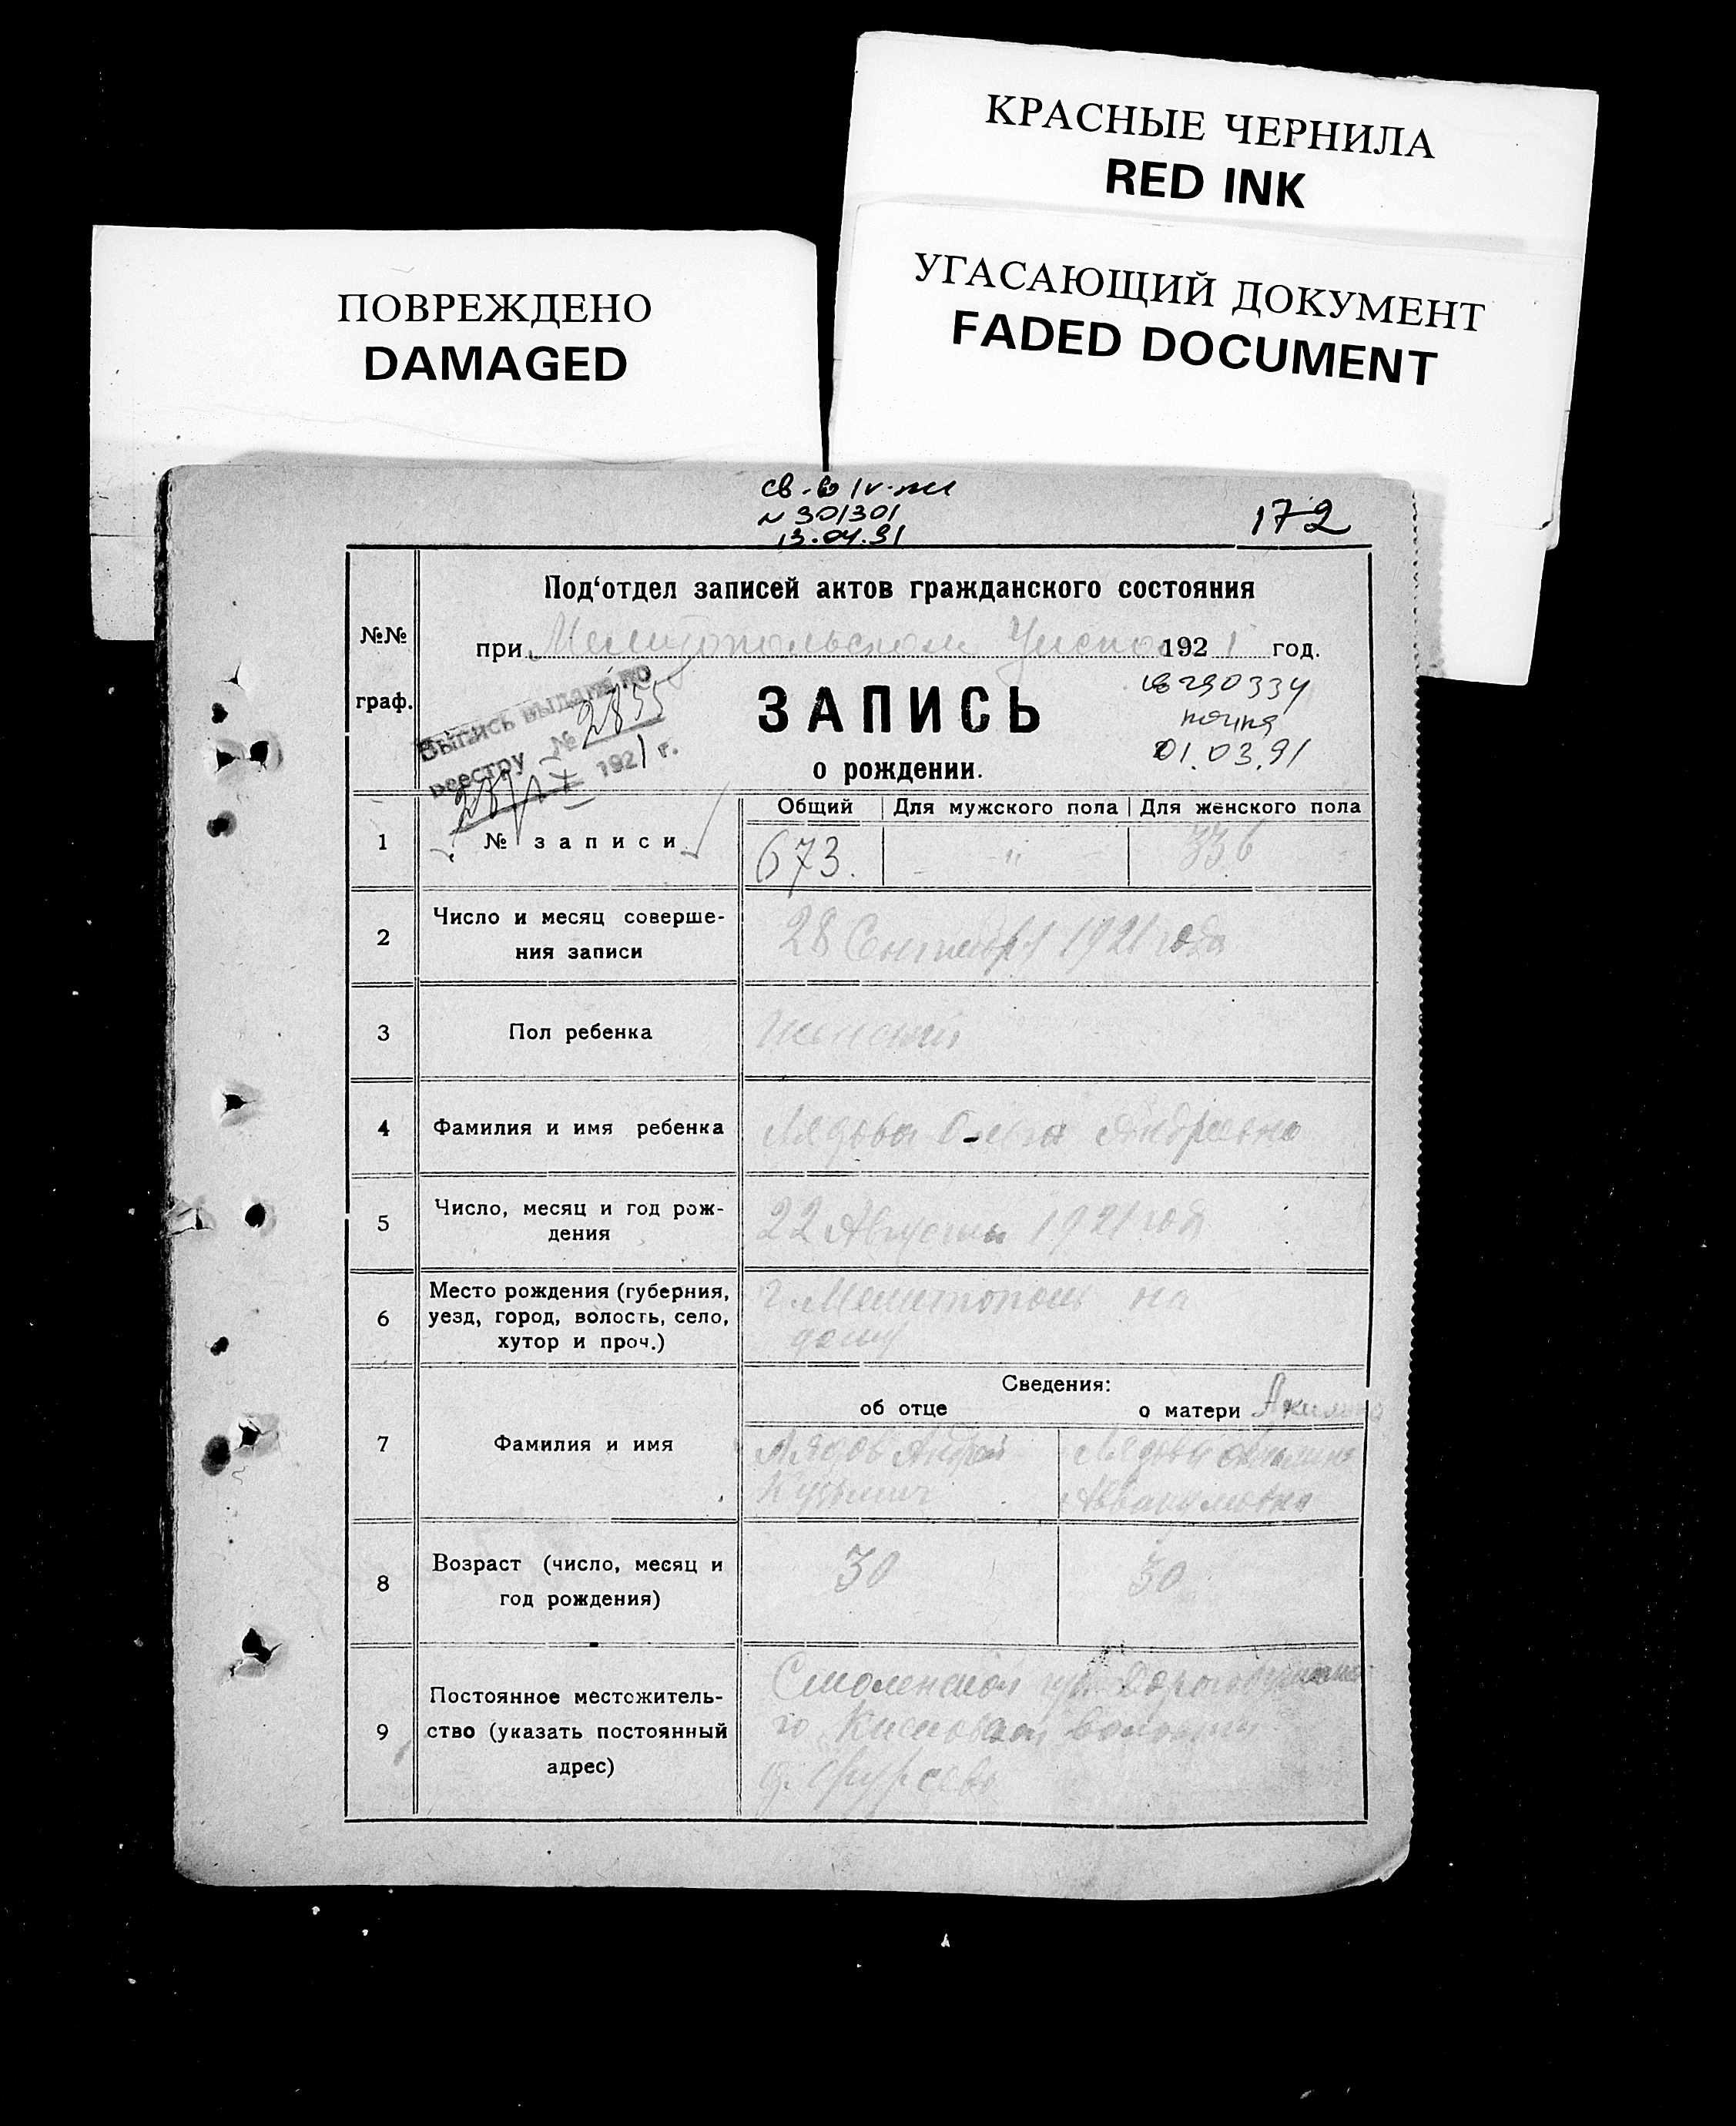 КРАСНЫЕ ЧЕРНИЛА
RED INK
УГАСАЮЩИЙ ДОКУМЕНТ
FADED DOCUMENT
ПОВРЕЖДЕНО
DAMAGED
N 301301
13.04.91
172
Под‘отдел записей актов гражданского состояния
№№ граф.
при Мелитопольском 1921 год.
Выпись выдана по
реестру № 2855
1921 г.
ЗАПИСЬ
о рождении.
290334
почта
01.03.91
Общий Для мужского пола Для женского пола
1 № записи 673. " 336
2 Число и месяц соверше-
ния записи
28 Сентября 1921 года
3 Пол ребенка
Женский
4 Фамилия и имя ребенка
Лядова Ольга Андреевна
5 Число, месяц и год рож-
дения
22 Августа 1921 год
6 Место рождения (губерния,
уезд, город, волость, село,
хутор и проч.)
г. Мелитополь на
дому
Сведения:
об отце о матери Акилина
7 Фамилия и имя
Лядов Андрей
Кузьмич
Лядова
Аввакумовна
8 Возраст (число, месяц и
год рождения)
30 30
9 Постоянное местожитель-
ство (указать постоянный
адрес)
Смоленской губ. Дорогобужско
го волости
д.